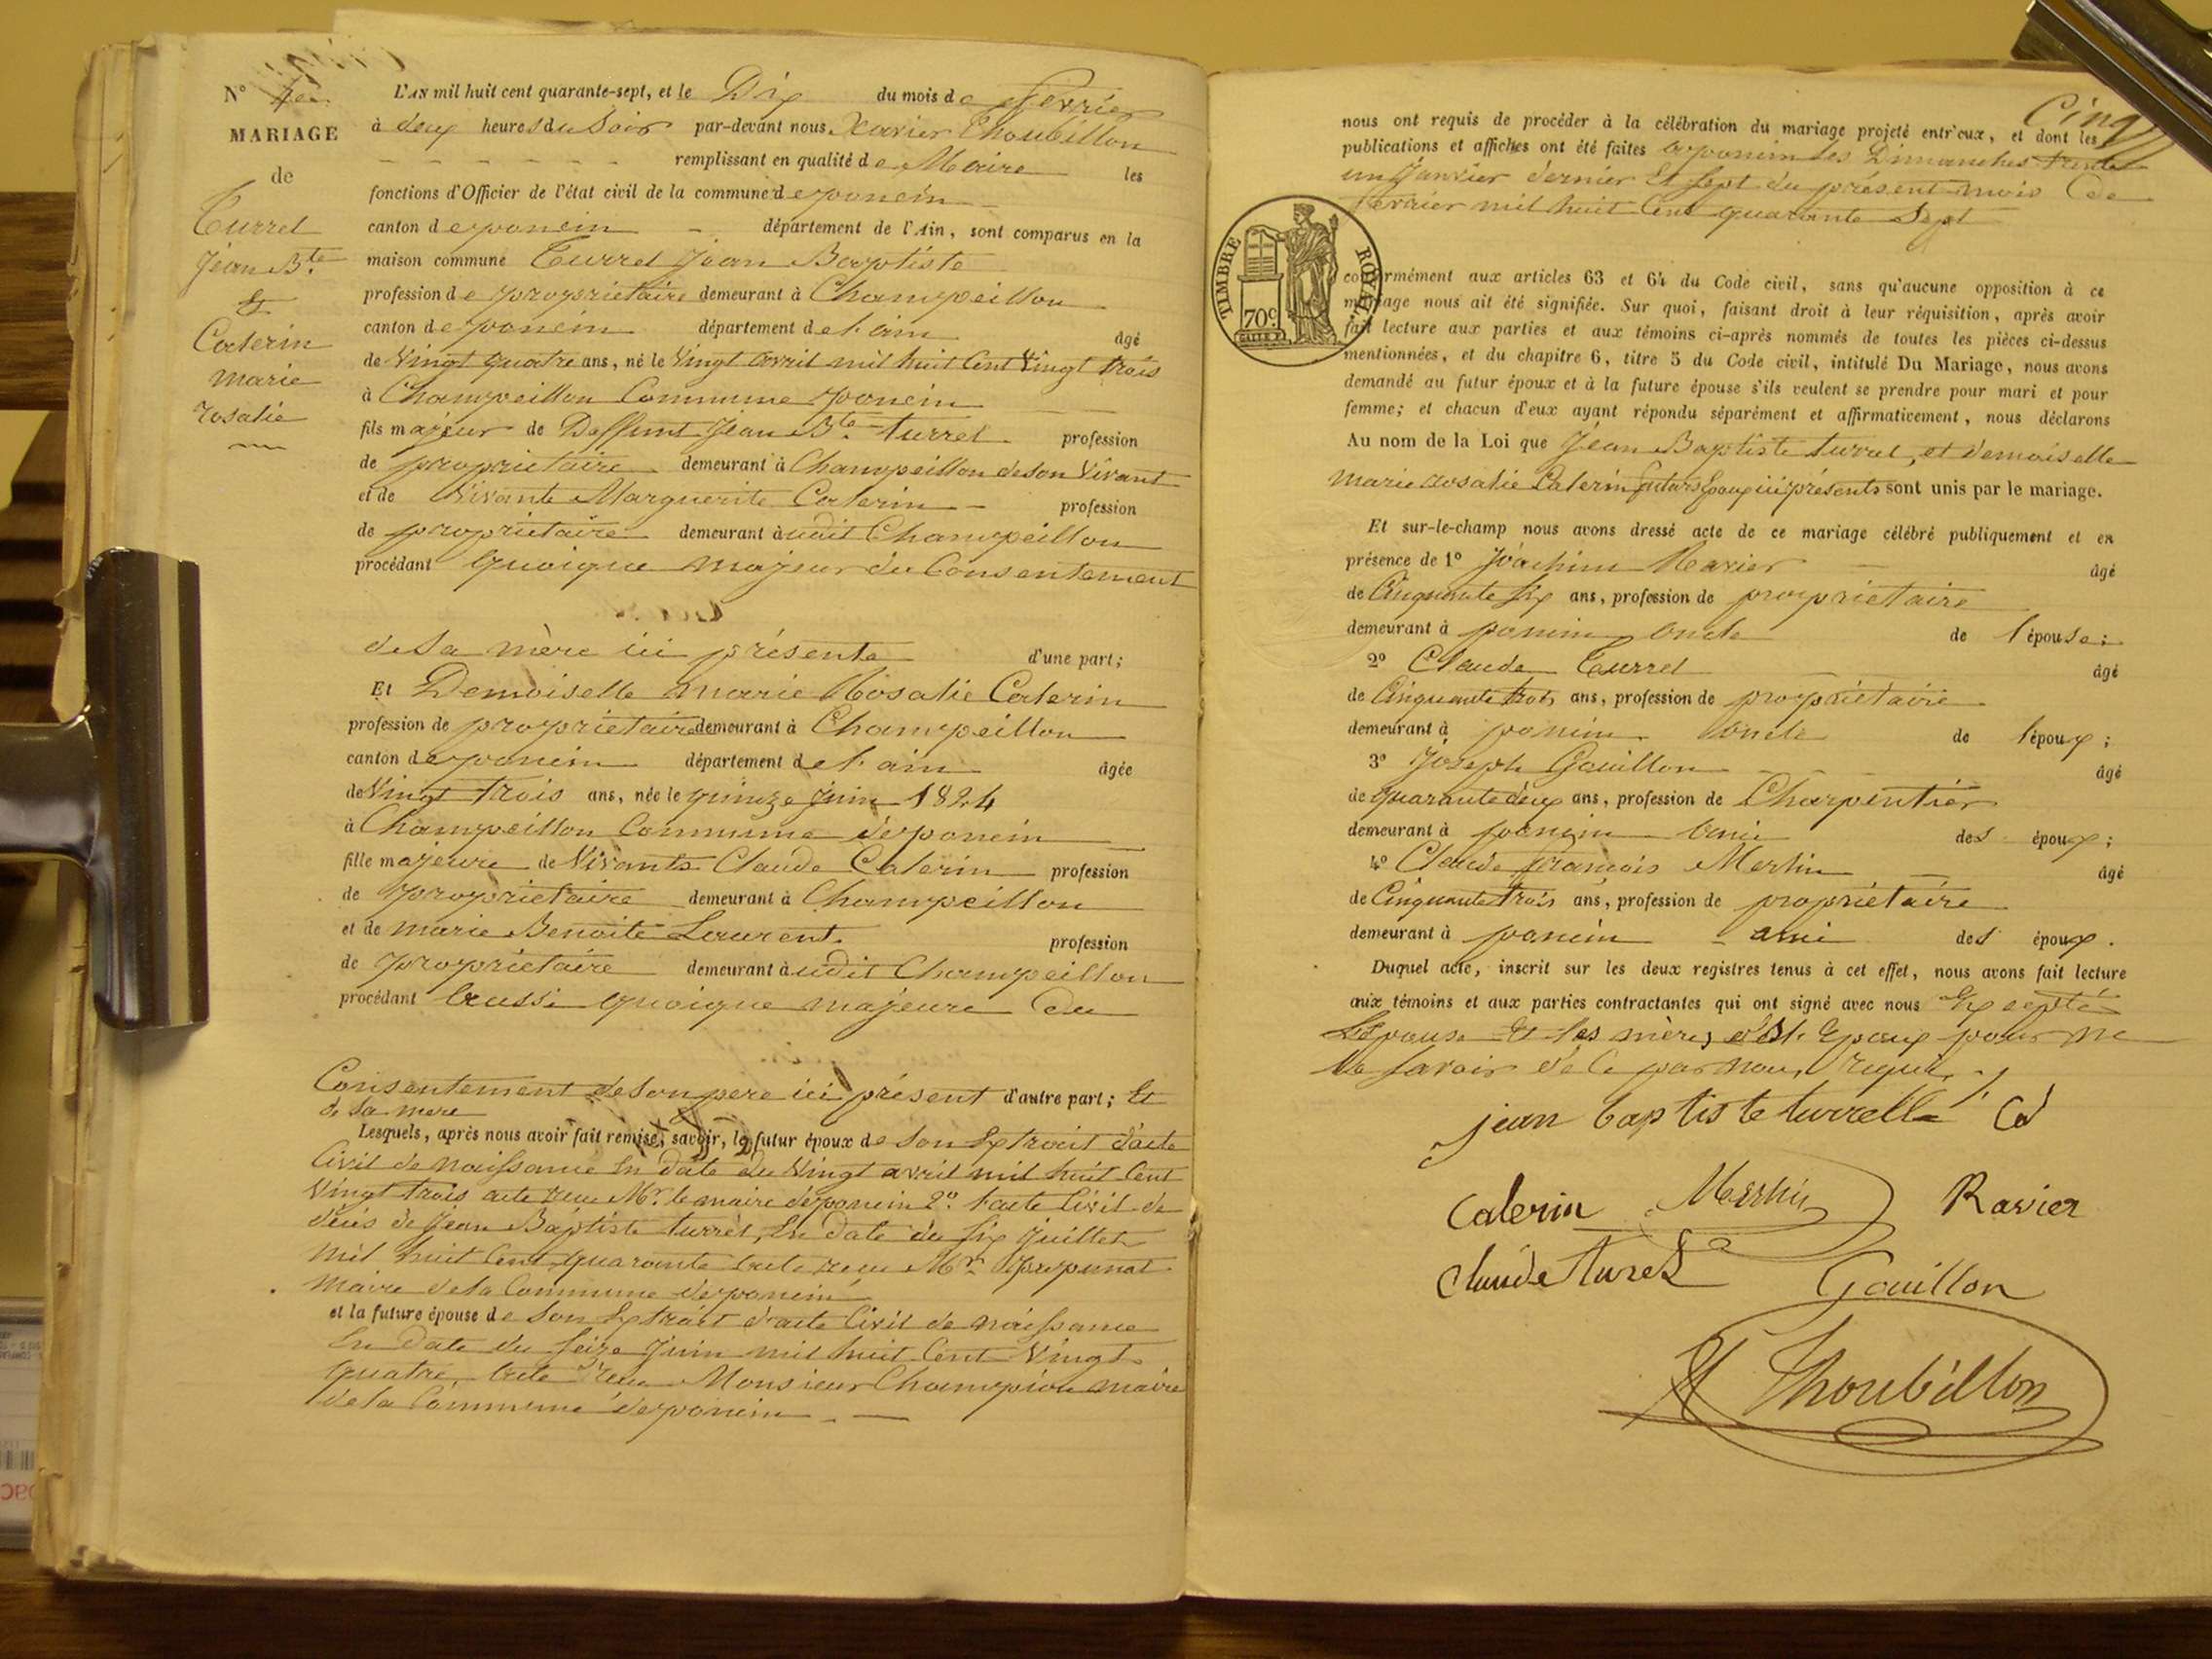 N° 4
MARIAGE
de
Turrel
Jean Bte
Et
Caterin
marie
rosalie
L'AN mil huit cent quarante-sept, et le Dix du mois de fevrier
à deux heures du Soir par-devant nous Xavier Thoubillon
remplissant en qualité de Maire les
fonctions d'Officier de l'état civil de la commune de poncin
canton de poncin département de l'Ain, sont comparus en la
maison commune Turrel Jean Baptiste
profession de proprietaire demeurant à Champeillon
canton de poncin département de l'ain âgé
de Vingt quatre ans, né le Vingt avril mil huit Cent Vingt trois
à Champeillon Commune poncin
fils majeur de Deffunt Jean Bte turrel profession
de proprietaire demeurant à Champeillon de son Vivant
et de Vivante Marguerite Caterin profession
de proprietaire demeurant à udit Champeillon
procédant quoique majeur du Consentement
de sa mère ici présente d'une part;
Et Demoiselle marie Rosalie Caterin
profession de proprietaire demeurant à Champeillon
canton de poncin département de l'ain âgée
de Vingt trois ans, née le quinze juin 1824
à Champeillon Commune de poncin
fille majeure de Vivants Claude Caterin profession
de proprietaire demeurant à Champeillon
et de marie Benoite Laurent profession
de proprietaire demeurant à udit Champeillon
procédant aussi quoique majeure du
Consentement de son pere ici présent d'autre part; Et
de sa mere
Lesquels, après nous avoir fait remise, savoir, le futur époux de son Extrait d'acte
Civil de naissance En date du Vingt avril mil huit Cent
Vingt trois acte reçu Mr. le maire de poncin 2° l'acte Civil de
décès de Jean Baptiste turrel, En date du six Juillet
mil huit Cent quarante acte reçu Mr
maire de la Commune de poncin
et la future épouse de son Extrait d'acte Civil de naissance
En date du seize Juin mil huit Cent Vingt
quatre acte reçu Monsieur Champion maire
de la Commune de poncin
Cinq
nous ont requis de procéder à la célébration du mariage projeté entr'eux, et dont les
publications et affiches ont été faites a poncin les Dimanches trente
un Janvier dernier Et sept du présent mois de
fevrier mil huit Cent quarante Sept
TIMBRE ROYAL
70c
conformément aux articles 63 et 64 du Code civil, sans qu'aucune opposition à ce
mariage nous ait été signifiée. Sur quoi, faisant droit à leur réquisition, après avoir
fait lecture aux parties et aux témoins ci-après nommés de toutes les pièces ci-dessus
mentionnées, et du chapitre 6, titre 5 du Code civil, intitulé Du Mariage, nous avons
demandé au futur époux et à la future épouse s'ils veulent se prendre pour mari et pour
femme; et chacun d'eux ayant répondu séparément et affirmativement, nous déclarons
Au nom de la Loi que Jean Baptiste turrel, et demoiselle
marie rosalie Caterin futurs Epoux ici présents sont unis par le mariage.
Et sur-le-champ nous avons dressé acte de ce mariage célébré publiquement et en
présence de 1° Joachim Ravier âgé
de Cinquante six ans, profession de proprietaire
demeurant à poncin oncle de l'épouse;
2° Claude Turrel âgé
de Cinquante trois ans, profession de proprietaire
demeurant à poncin oncle de l'époux;
3° Joseph Gouillon âgé
de quarante deux ans, profession de Charpentier
demeurant à poncin ami des époux;
4° Claude françois Merlin âgé
de Cinquante trois ans, profession de propriétaire
demeurant à poncin ami des époux.
Duquel acte, inscrit sur les deux registres tenus à cet effet, nous avons fait lecture
aux témoins et aux parties contractantes qui ont signé avec nous Excepté
L'Epouse Et les mères des Epoux pour ne
le savoir de ce par nous requis
jean baptiste turrelle Cd
Caterin Merlin Ravier
Claude turel Gouillon
X Thoubillon